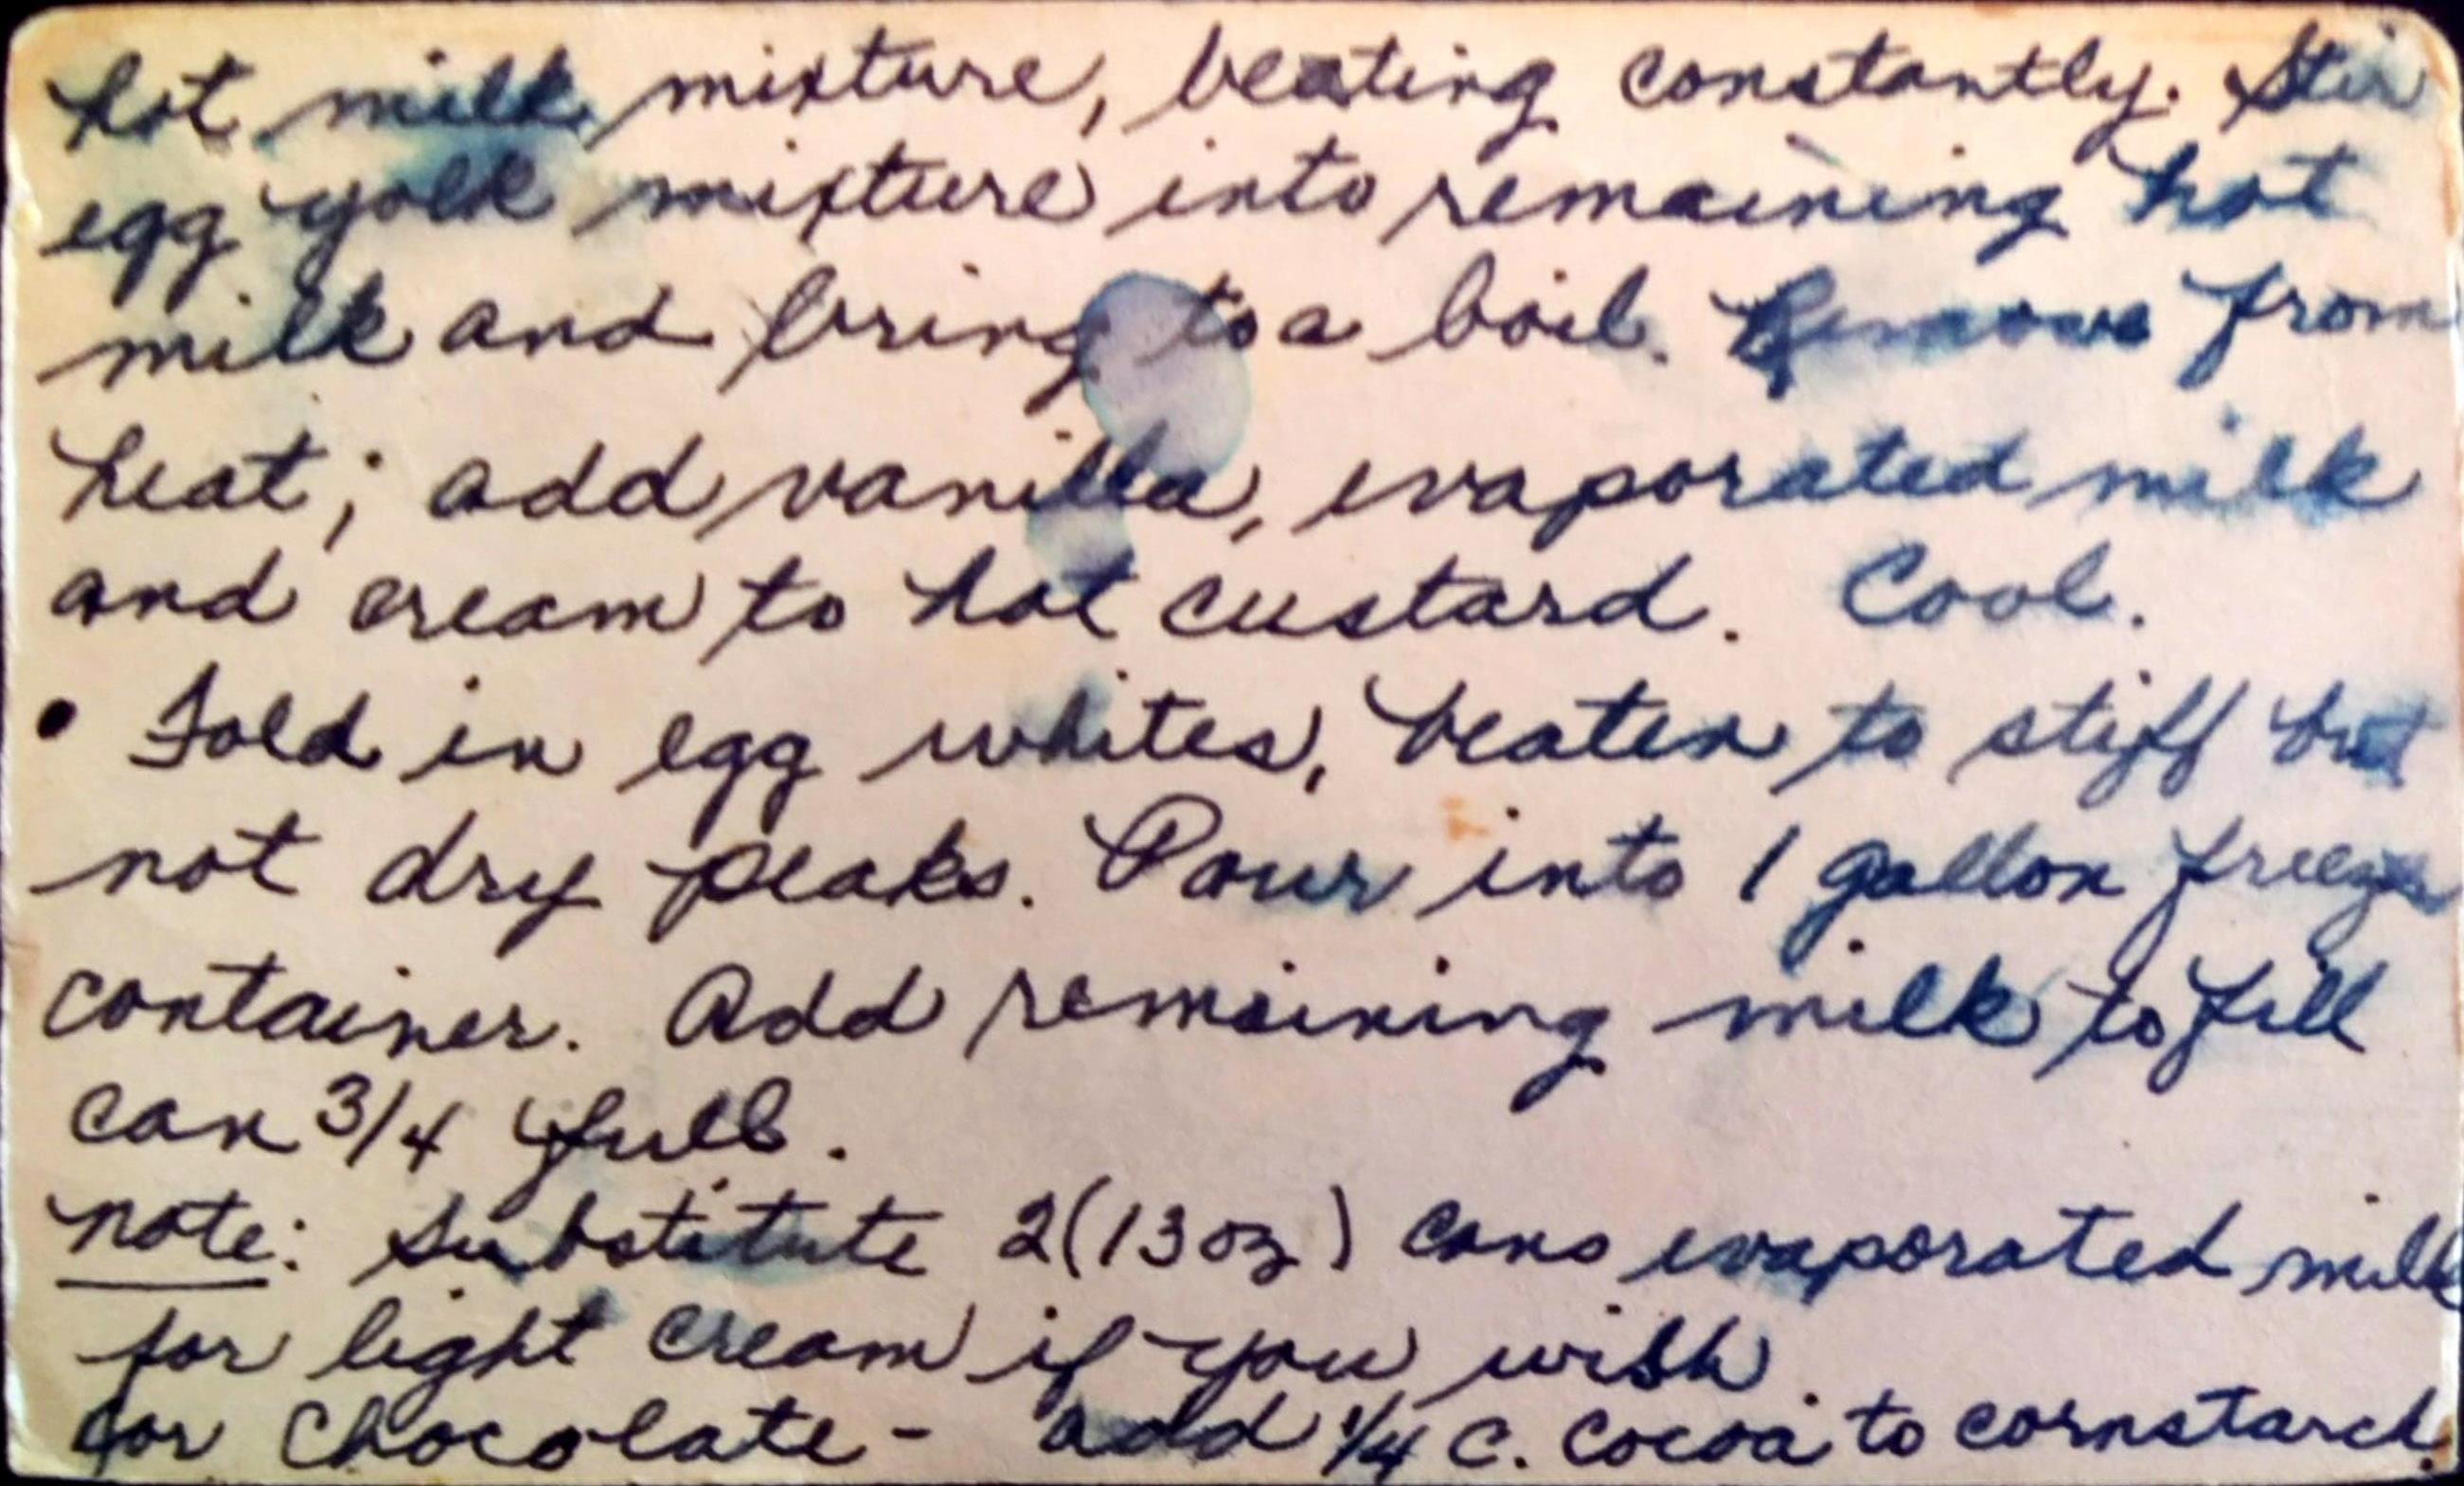 hot milk mixture, beating constantly. Stir
egg yolk mixture into remaining hot
milk and bring to a boil. Remove from
heat; add vanilla, evaporated milk
and cream to hot custard. Cool.
• Fold in egg whites, beaten to stiff but
not dry peaks. Pour into 1 gallon freezer
container. Add remaining milk to fill
can 3/4 full.
note: substitute 2 (13 oz) cans evaporated milk
for light cream if you wish.
for chocolate - add 1/4 c. cocoa to cornstarch.